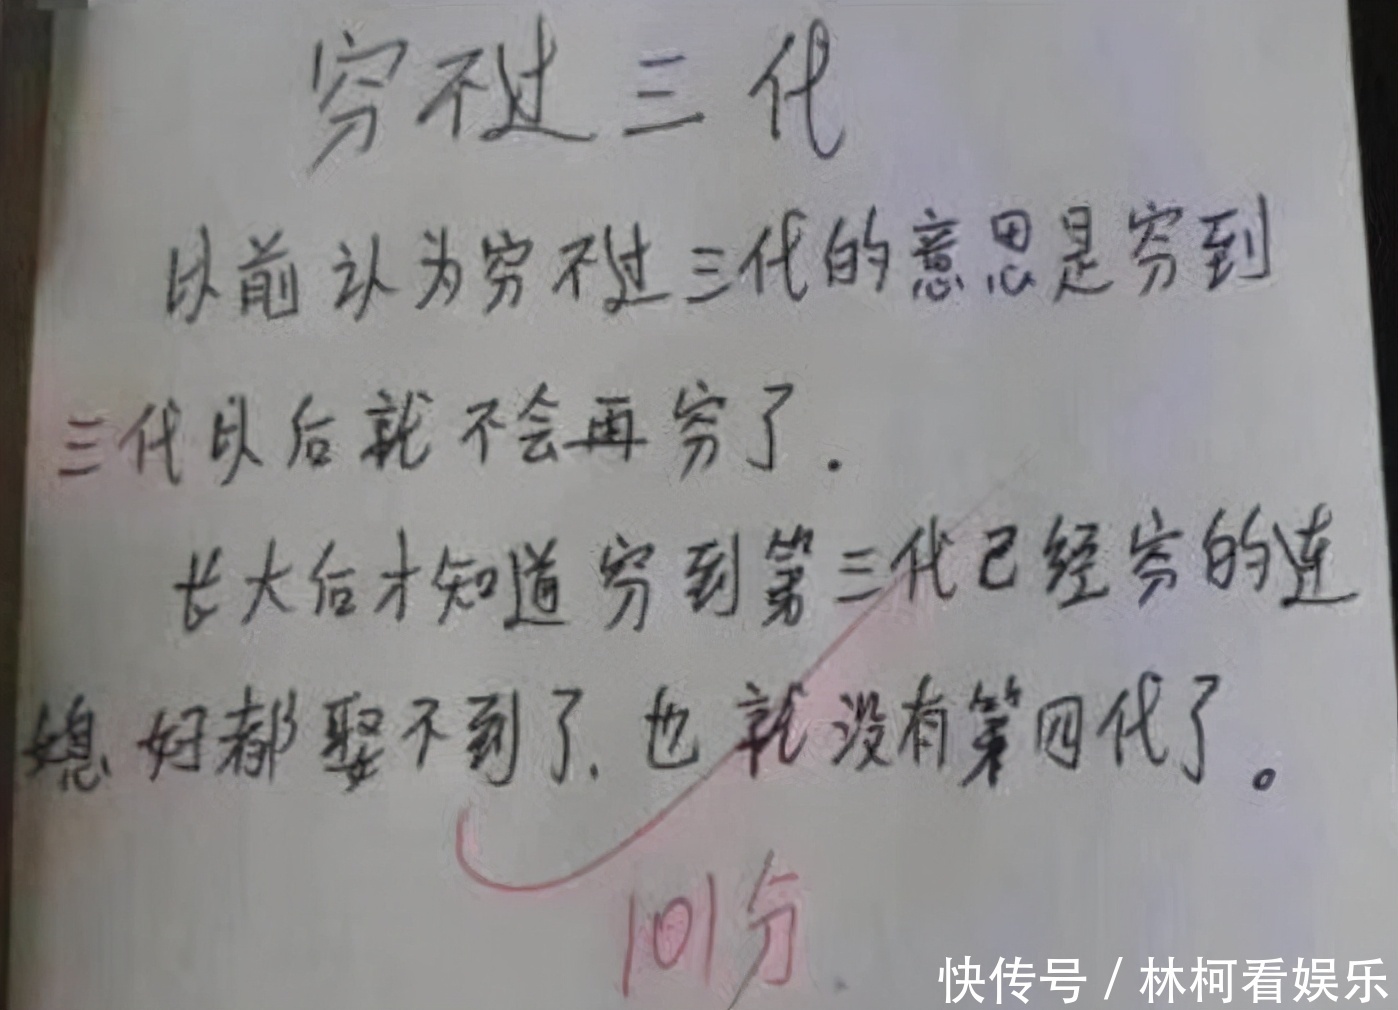 穷不过三代
以前认为穷不过三代的意思是穷到
三代以后就不会再穷了.
长大后才知道穷到第三代已经穷的连
媳妇都娶不到了.也就没有第四代了。
101分
快传号/林柯看娱乐